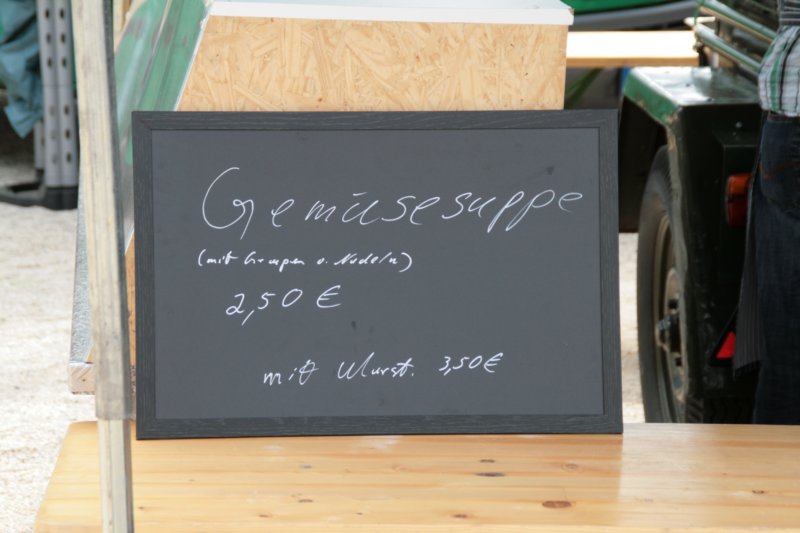 Gemüsesuppe
(mit Graupen o. Nudeln)
2,50 €
mit Wurst. 3,50€